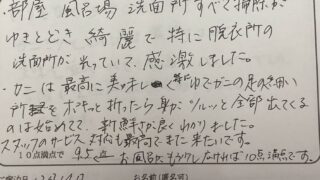 部屋 風呂場 洗面所すべて掃除が
ゆきとどき 綺麗で 特に 脱衣所の
洗面所が 光っていて、感激しました。
・カニは最高に美味しく 特に ゆでガニの足の細い
所をポキッと折ったら身がツルッと全部出てくる
のは始めてで、新鮮さが良くわかりました。
スタッフのサービス 対応も最高でまた来たいです。
10点満点で 9.5点 お風呂がもう少し なければ10点満点です。